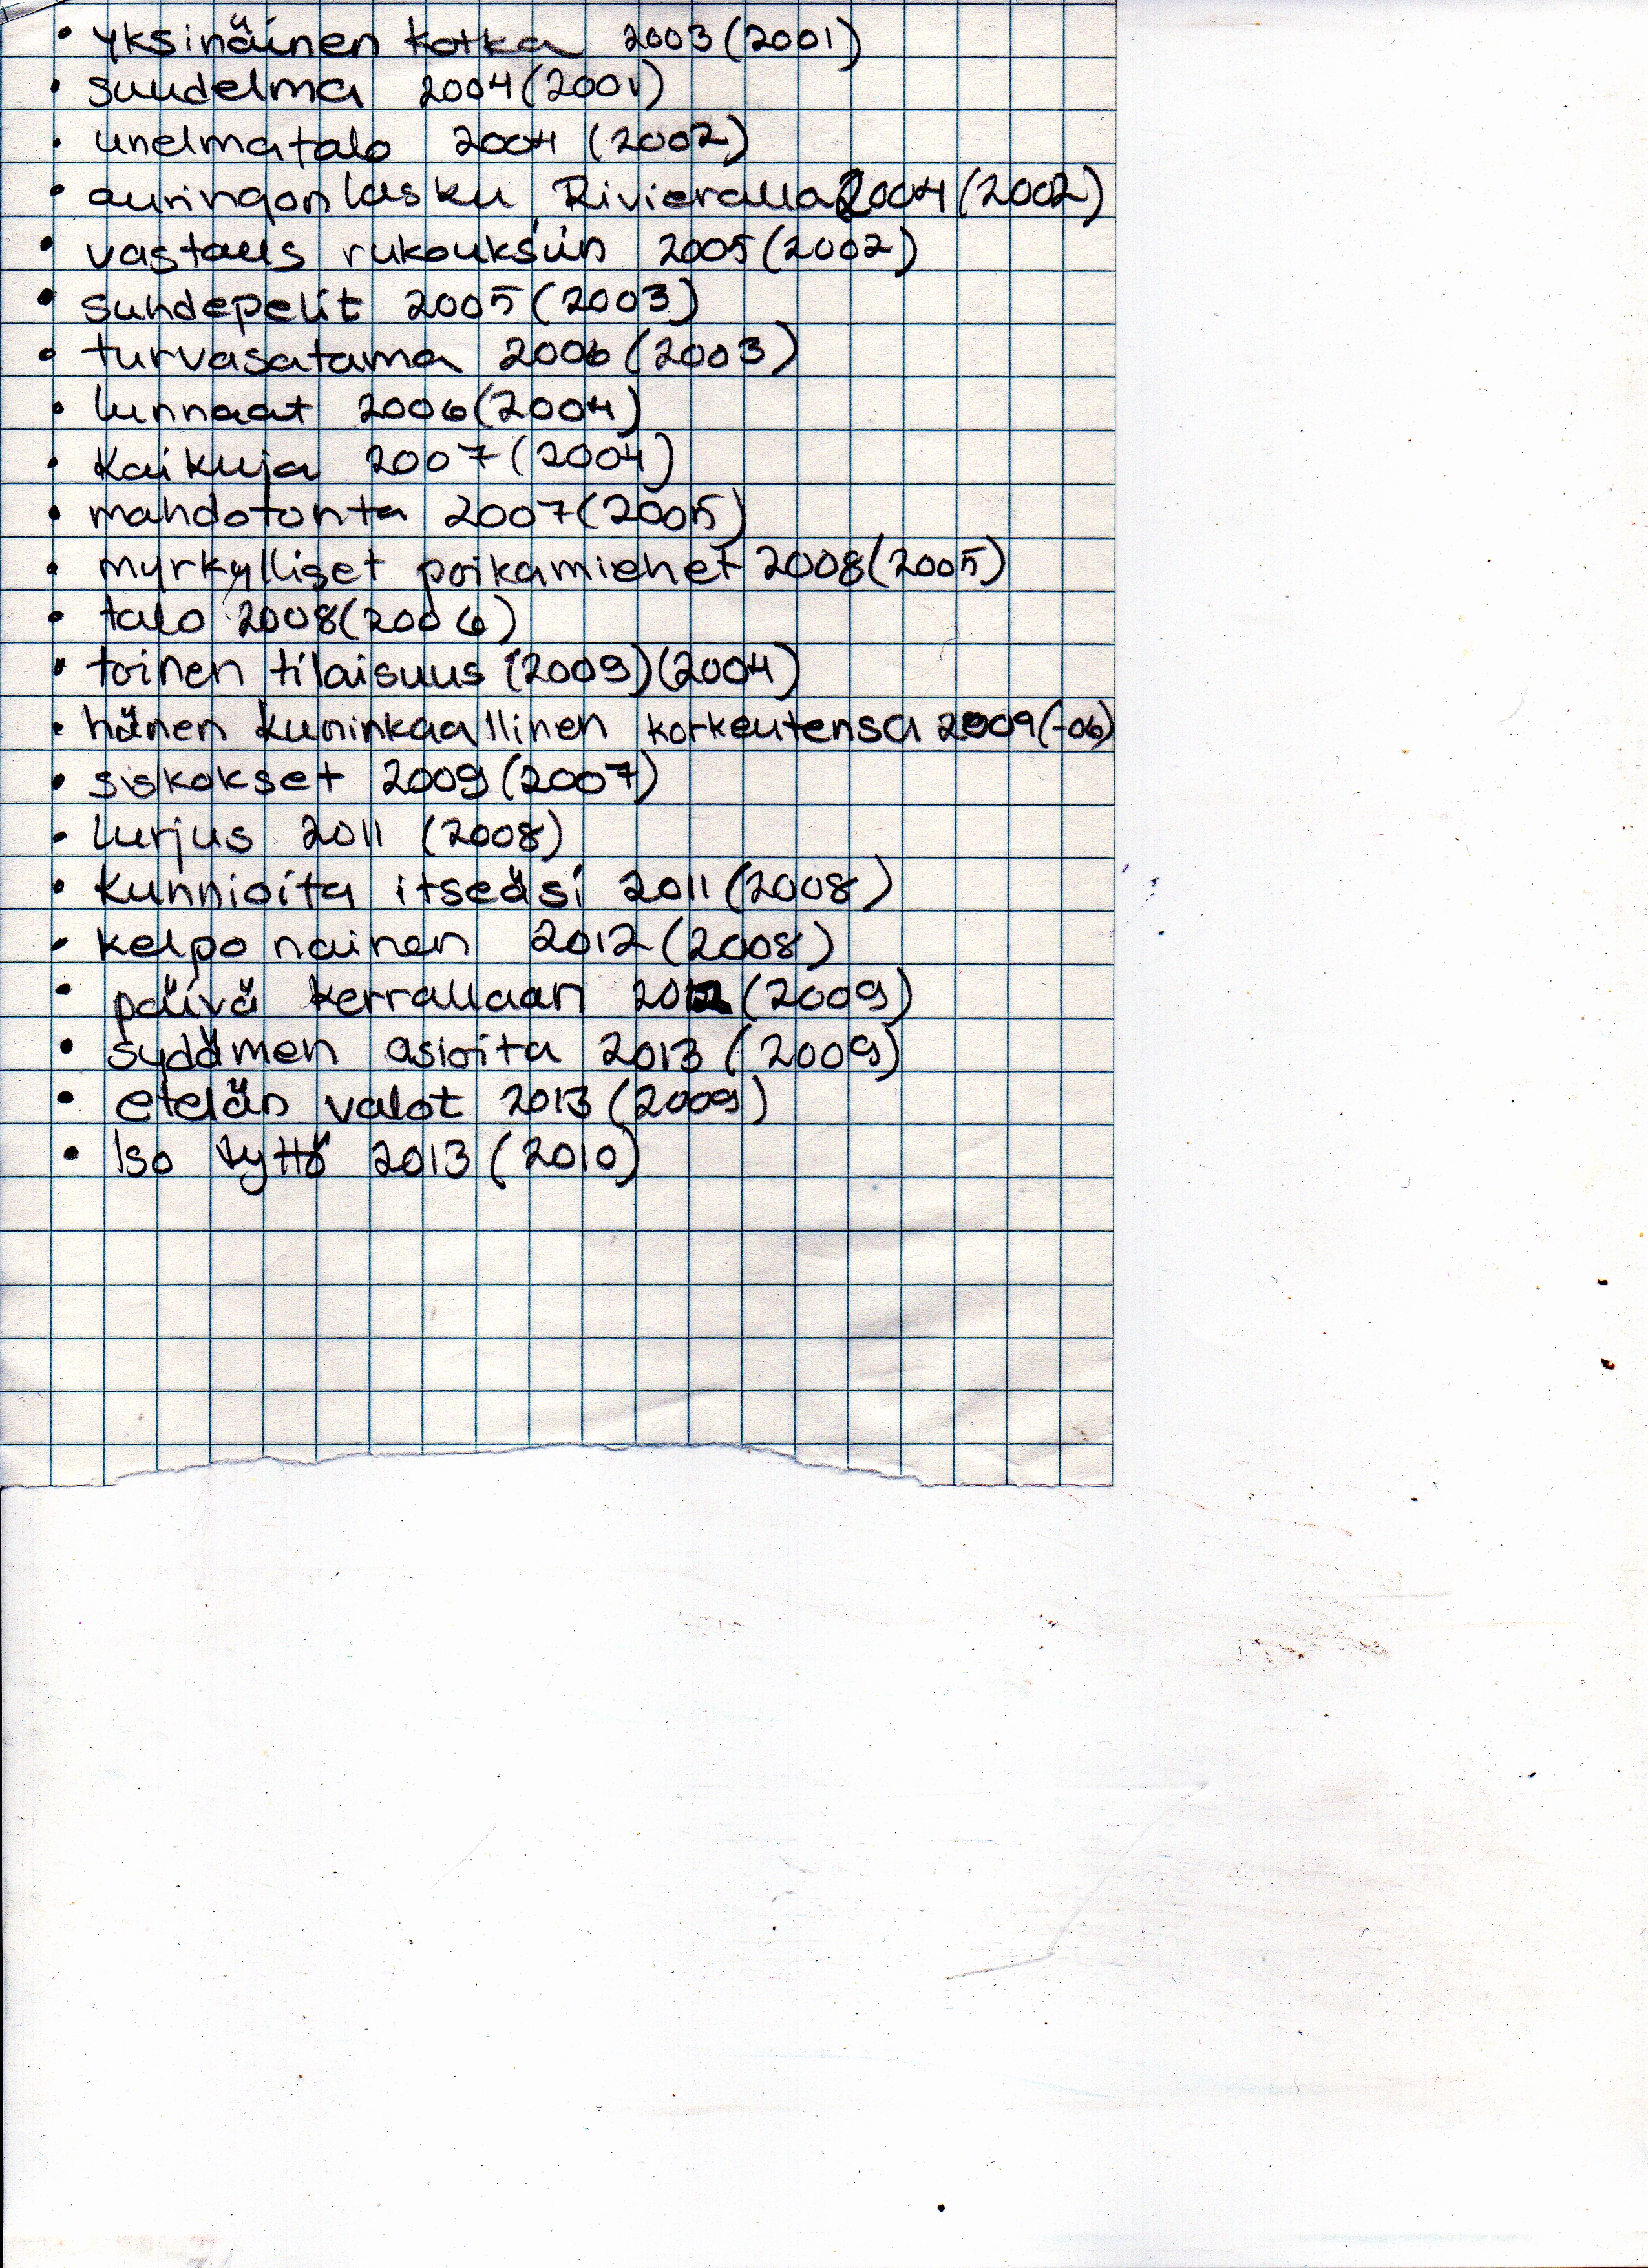 • yksinäinen kotka 2003 (2001)
• suudelma 2004 (2001)
• unelmatalo 2004 (2002)
• auringonlasku Rivieralla 2004 (2002)
• vastaus rukouksiin 2005 (2002)
• suhdepelit 2005 (2003)
• turvasatama 2006 (2003)
• lunnaat 2006 (2004)
• Kaikuja 2007 (2004)
• mahdotonta 2007 (2005)
• myrkylliset poikamiehet 2008 (2005)
• talo 2008 (2006)
• toinen tilaisuus (2009) (2004)
• hänen kuninkaallinen korkeutensa 2009 (-06)
• siskokset 2009 (2007)
• lurjus 2011 (2008)
• kunnioita itseäsi 2011 (2008)
• kelpo nainen 2012 (2008)
• päivä kerrallaan 2012 (2009)
• sydämen asioita 2013 (2009)
• etelän valot 2013 (2009)
• Iso tyttö 2013 (2010)